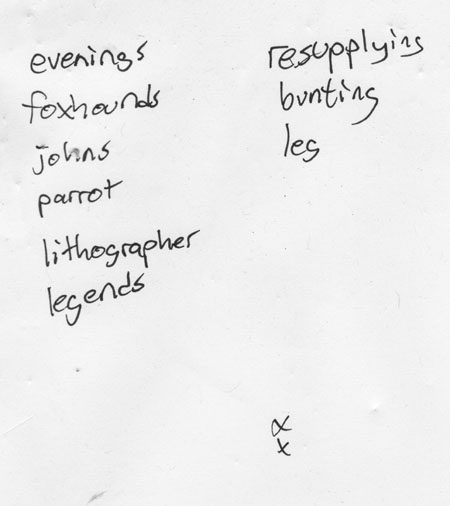 evenings
foxhounds
johns
parrot
lithographer
legends
resupplying
bunting
leg